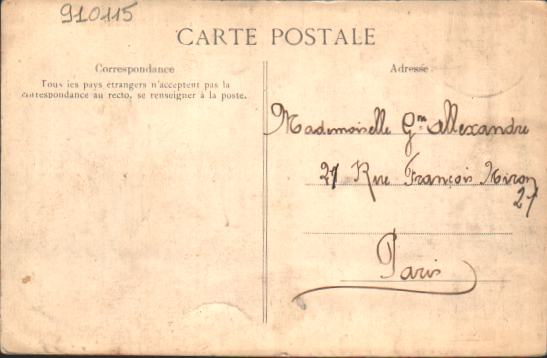 910115
CARTE POSTALE
Correspondance
Tous les pays étrangers n'acceptent pas la
correspondance au recto, se renseigner à la poste.
Adresse
Mademoiselle Gme Allexandre
27 Rue François Miron
27
Paris